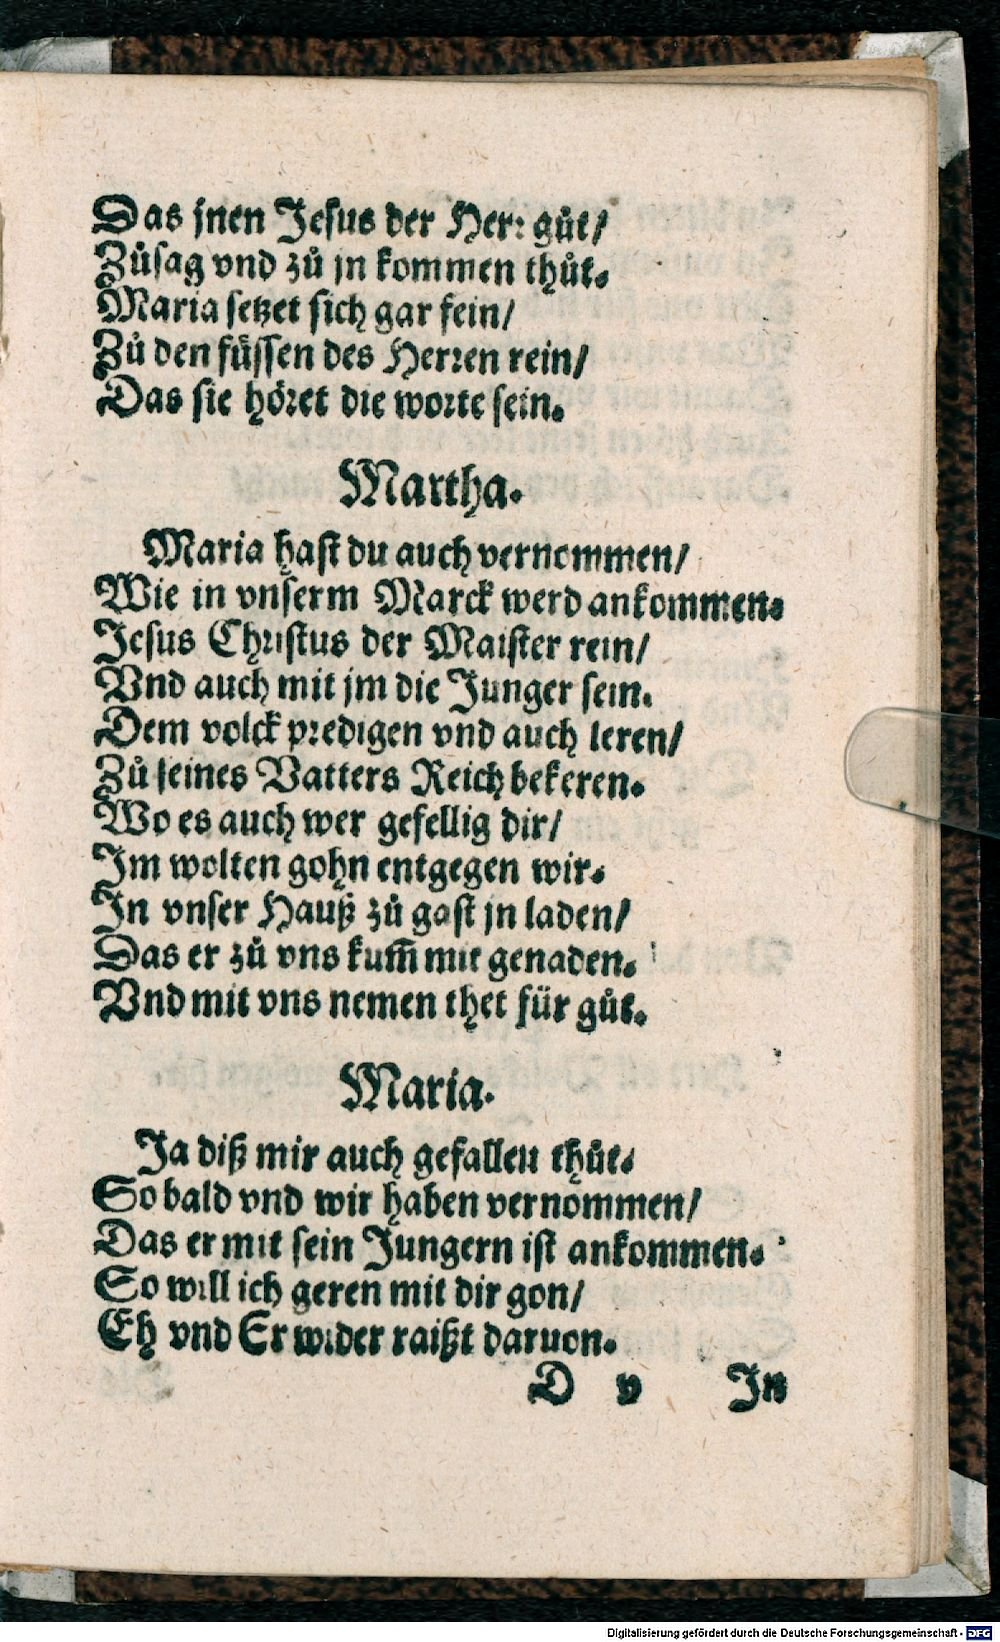 Das jnen Jesus der Herꝛ gůt/
Zůsag vnd zů jn kommen thůt.
Maria setzet sich gar fein/
Zů den füssen des Herꝛen rein/
Das sie höꝛet die woꝛte sein.
Martha.
Maria hast du auch vernommen/
Wie in vnserm Marck werd ankommen.
Jesus Chꝛistus der Maister rein/
Vnd auch mit jm die Junger sein.
Dem volck pꝛedigen vnd auch leren/
Zů seines Vatters Reich bekeren.
Wo es auch wer gefellig dir/
Im wolten gohn entgegen wir.
In vnser Hauß zů gast jn laden/
Das er zů vns kum̃ mit genaden.
Vnd mit vns nemen thet für gůt.
Maria.
Ja diß mir auch gefallen thůt.
So bald vnd wir haben vernommen/
Das er mit sein Jungern ist ankommen.
So will ich geren mit dir gon/
Eh vnd Er wider raißt daruon.
D v In
Digitalisierung gefördert durch die Deutsche Forschungsgemeinschaft - DFG